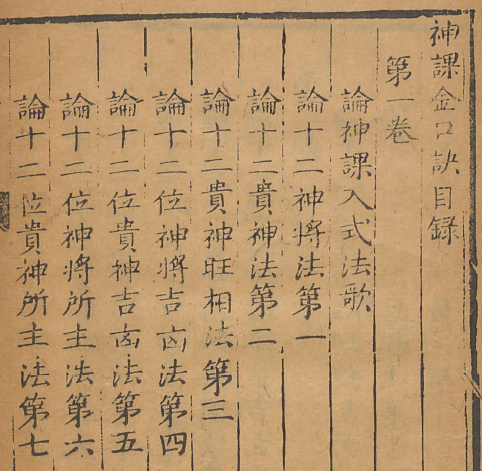 神課金口訣目録
第一卷
論神課入式法歌
論十二神將法第一
論十二貴神法第二
論十二貴神旺相法第三
論十二位神將吉凶法第四
論十二位貴神吉凶法第五
論十二位神將所主法第六
論十二位貴神所主法第七